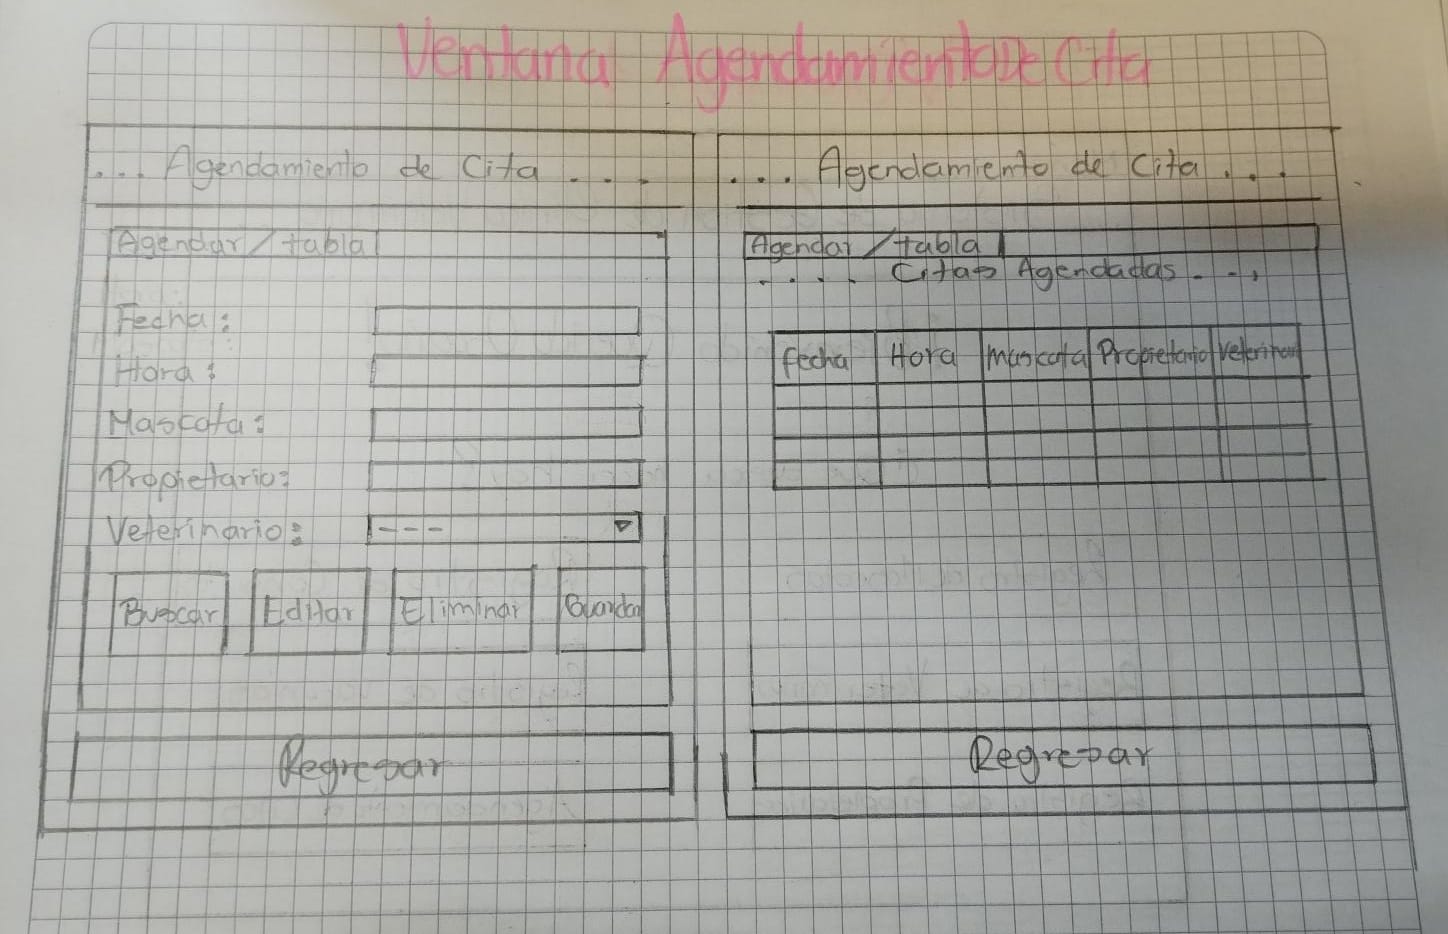 Ventana Agendamiento de Cita
... Agendamiento de Cita ...
Agendar / tabla
Fecha:
Hora:
Mascota:
Propietario:
Veterinario: ---
Buscar Editar Eliminar Guardar
Regresar
... Agendamiento de Cita ...
Agendar / tabla
.... Citas Agendadas ...
fecha Hora mascota Propietario Veterinario
Regresar